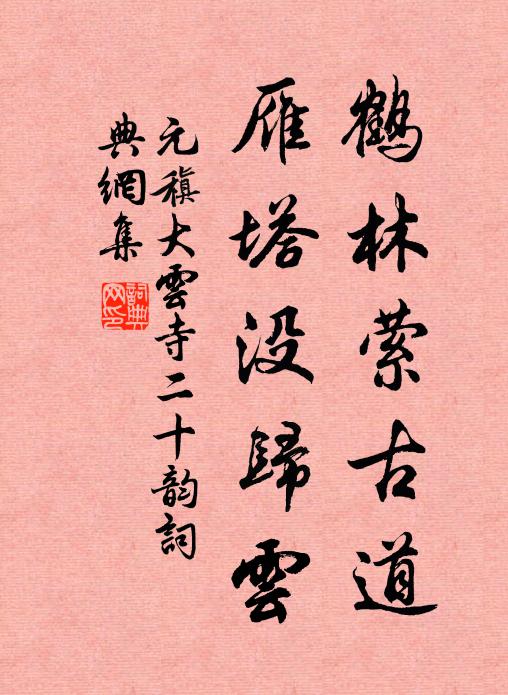 鶴林縈古道
雁塔没歸雲
元稹大雲寺二十韵詞
典網集
詞典網印